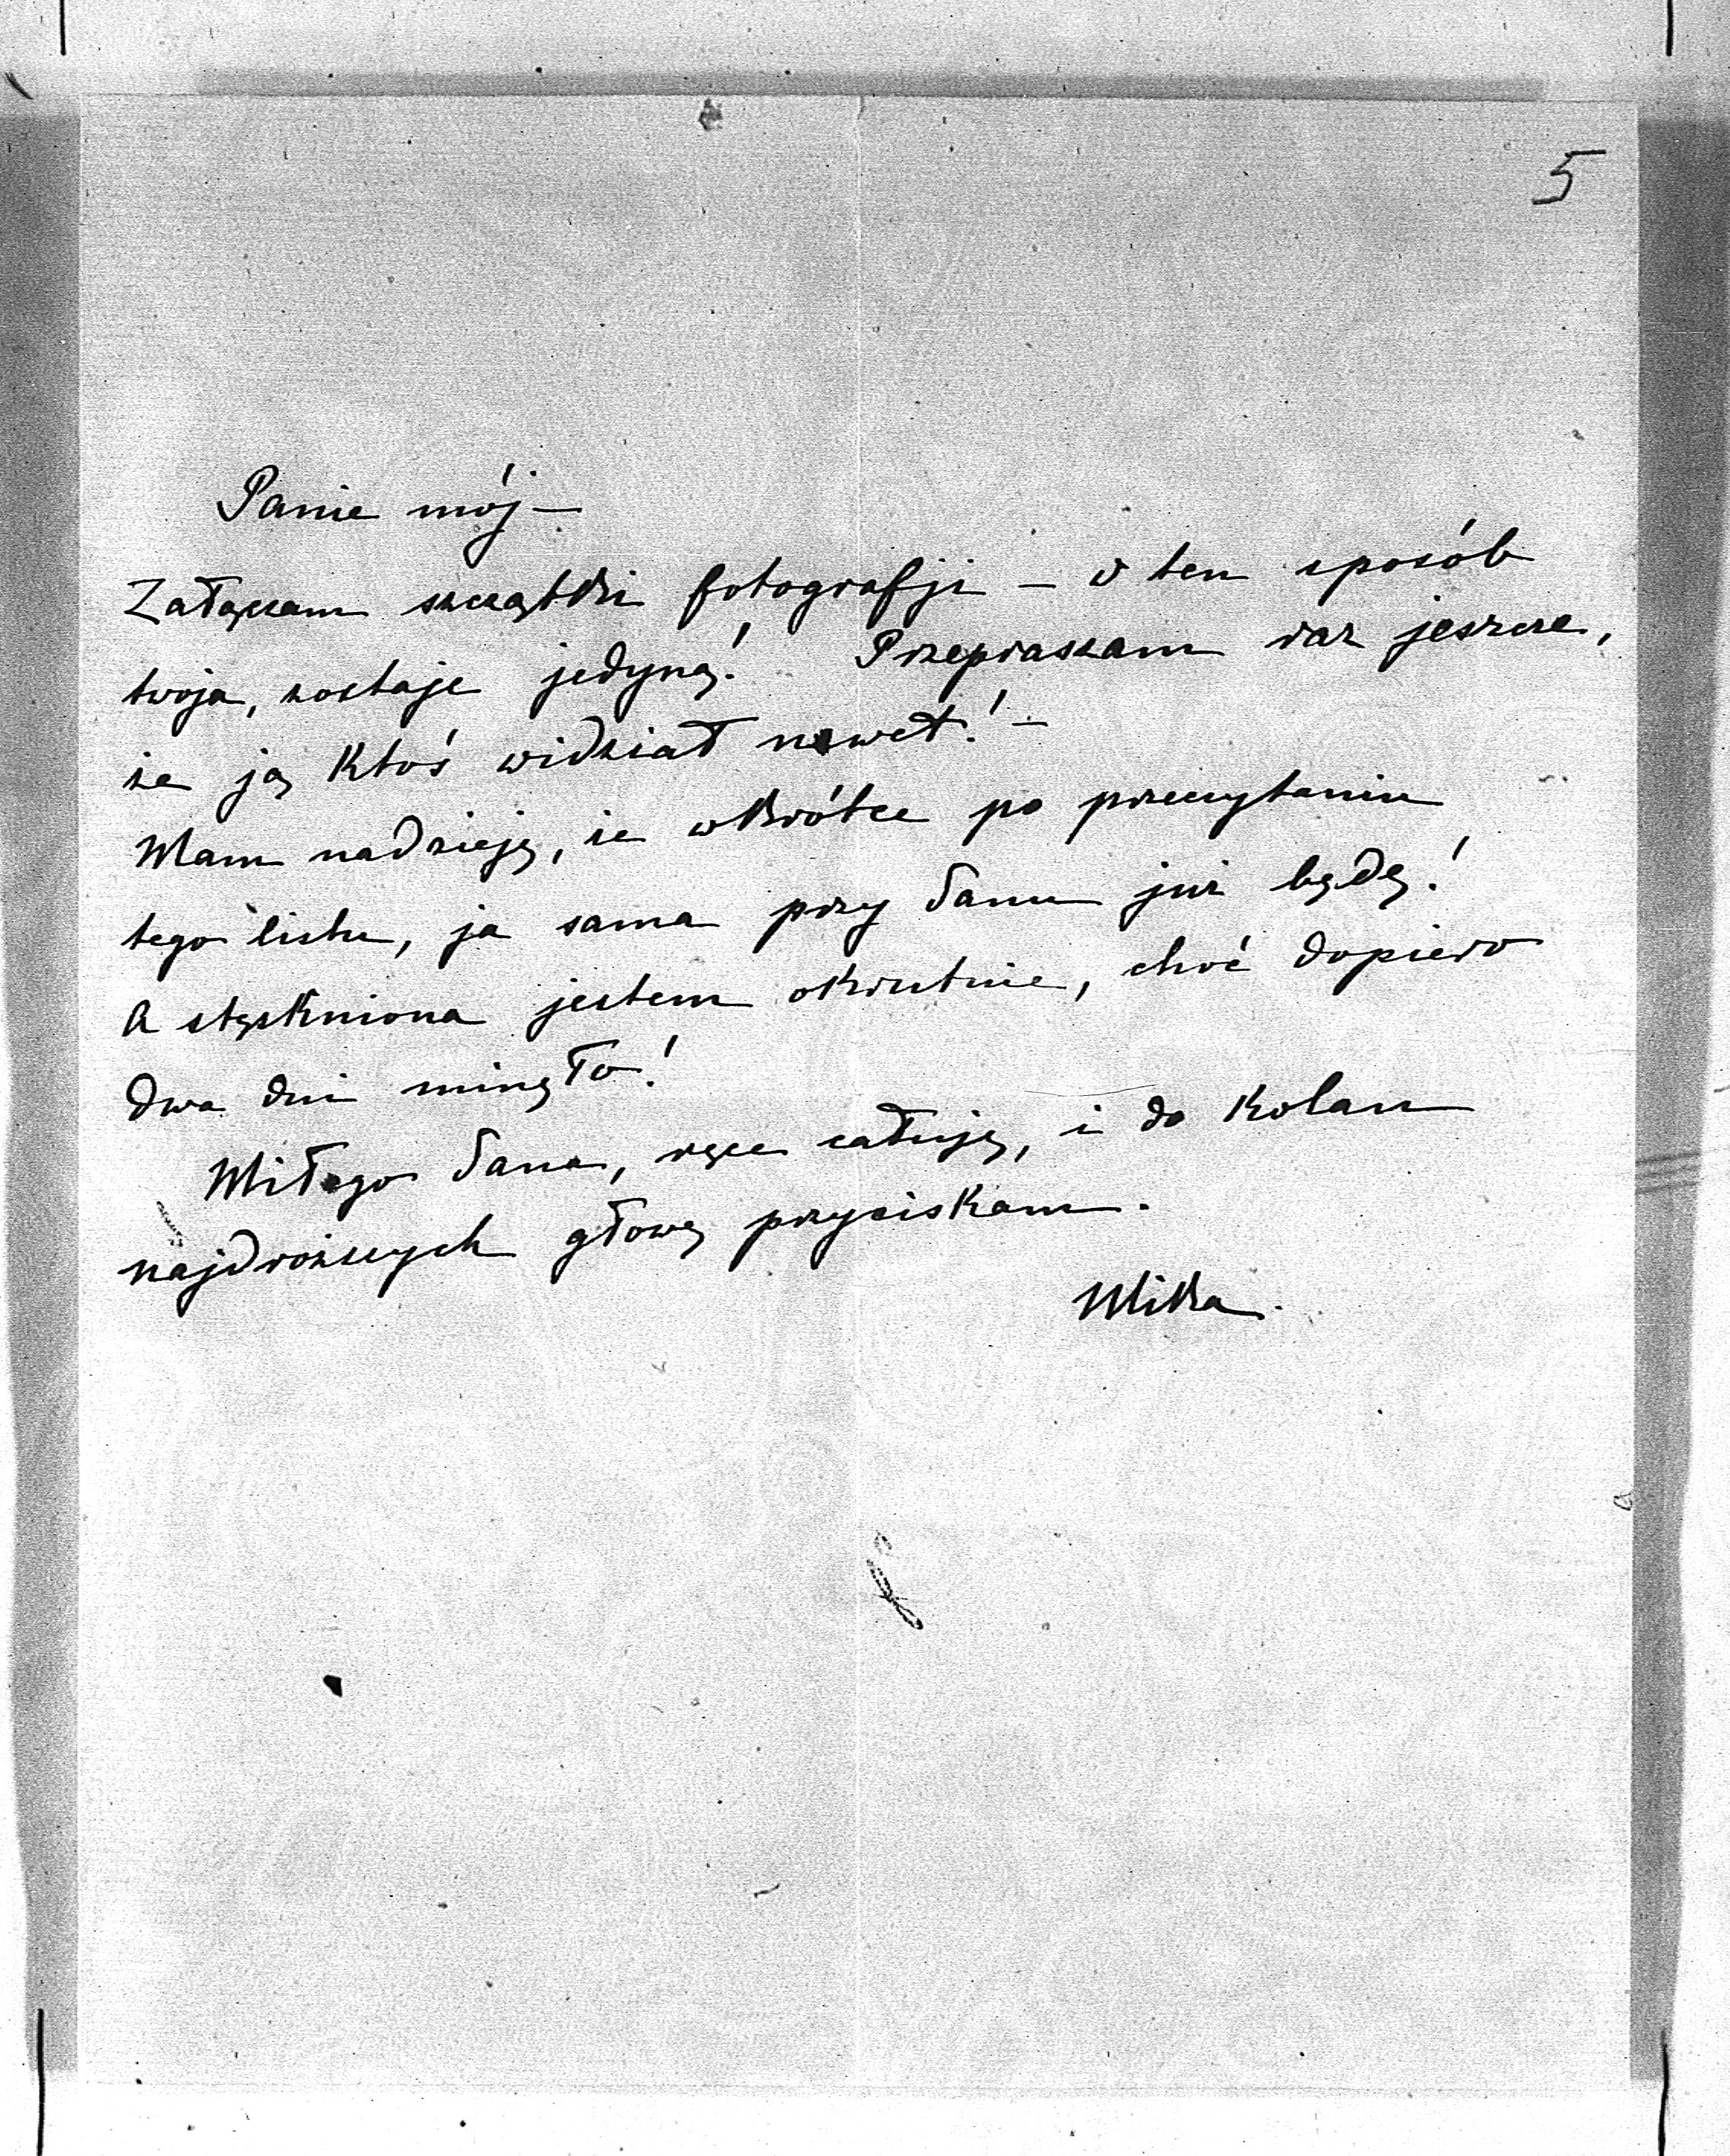 5
Panie mój –
Załączam szczątki fotografji – w ten sposób
twoja, zostaje jedyną! Przepraszam raz jeszcze,
że ją ktoś widział nawet! –
Mam nadzieję, że wkrótce po przeczytaniu
tego listu, ja sama przy Panu już będę!
A stęskniona jestem okrutnie, choć dopiero
dwa dni minęło!
Miłego Pana, ręce całuję, i do kolan
najdroższych głowę przyciskam.
Mika.